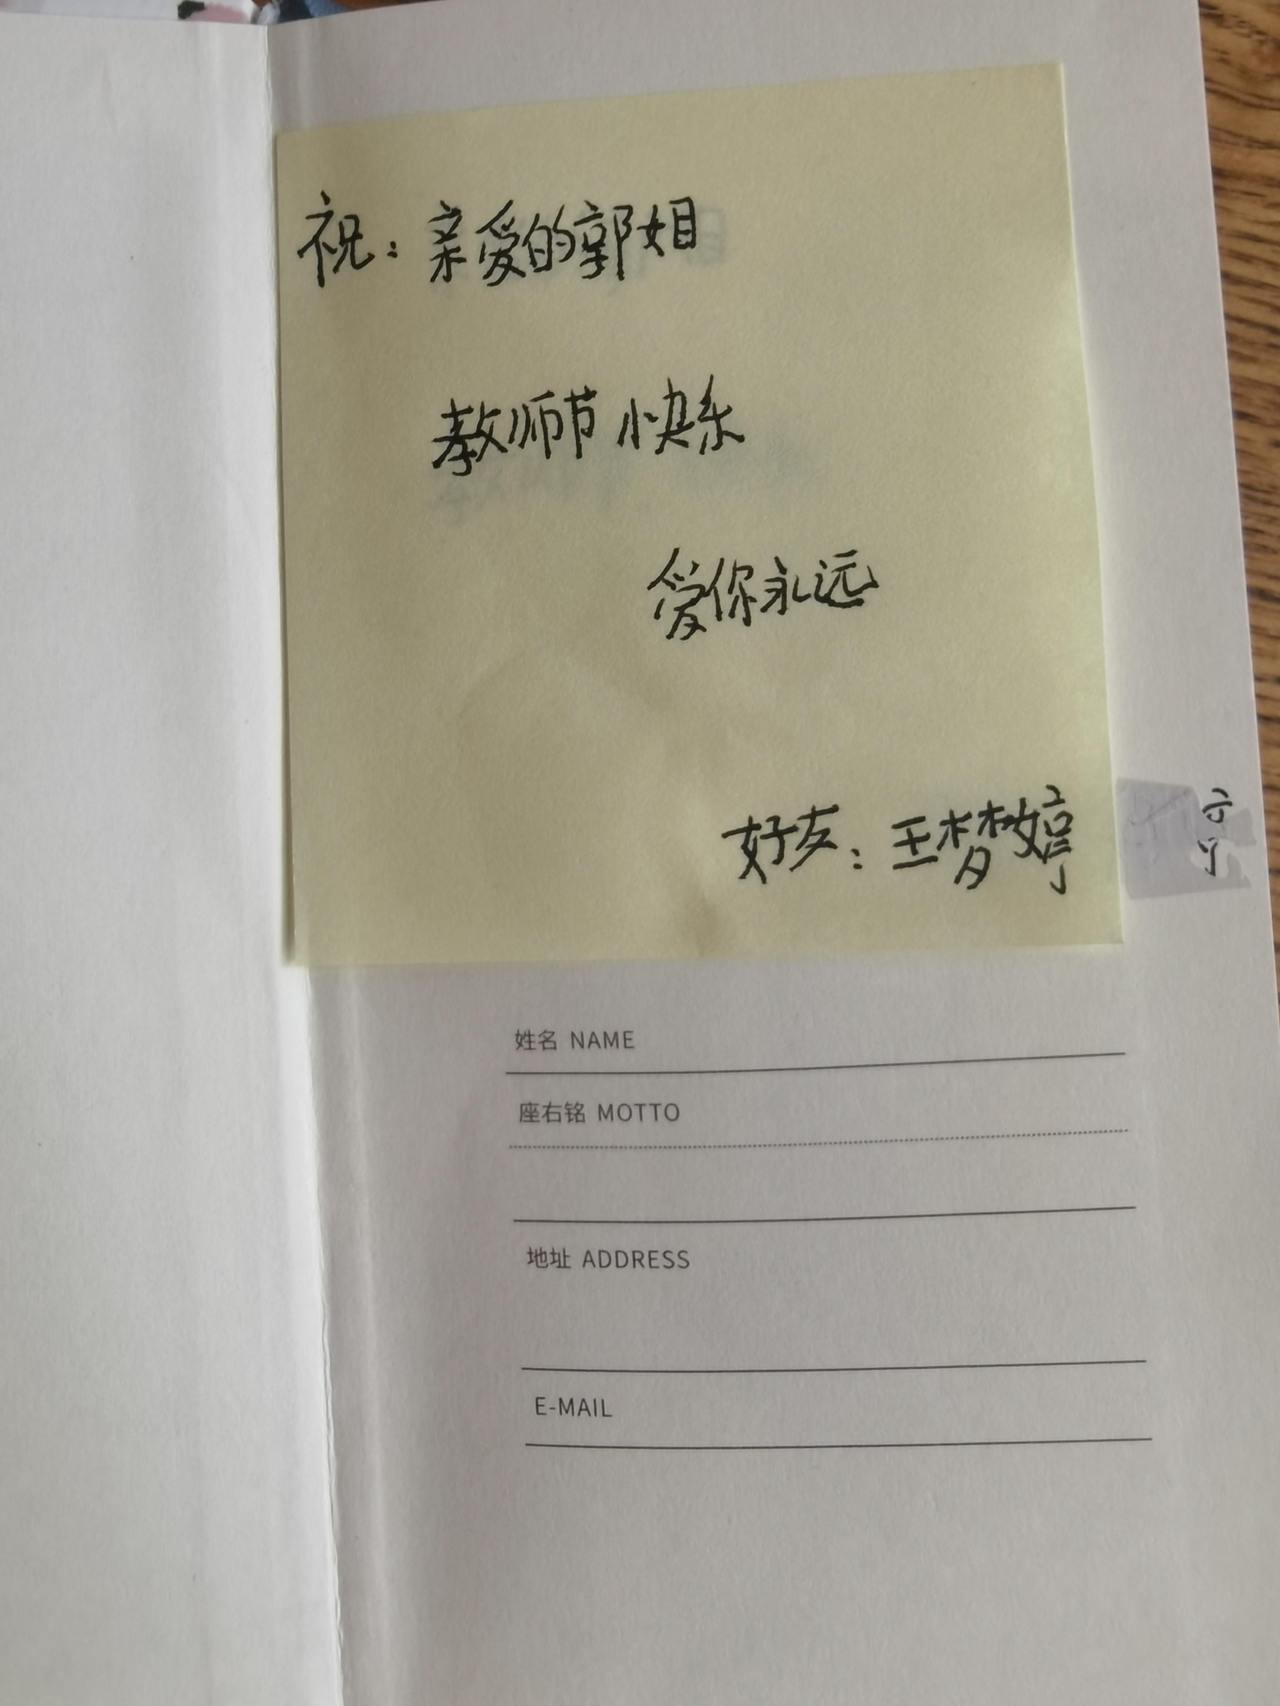 祝：亲爱的郭姐
教师节快乐
爱你永远
好友：王梦婷
姓名 NAME
座右铭 MOTTO
地址 ADDRESS
E-MAIL